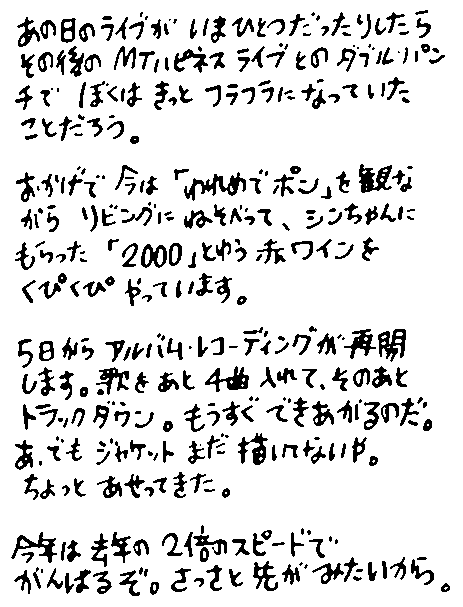 あの日のライブが いまひとつだったりしたら
その後の MTハピネス ライブ との ダブル・パン
チで ぼくは きっと フラフラになっていた
ことだろう。
おかげで 今は 「われめでポン」を 観な
がら リビングに ねそべって、シンちゃんに
もらった 「2000」という 赤ワインを
くぴくぴ やっています。
5日から アルバム・レコーディングが 再開
します。歌を あと 4曲 入れて、そのあと
トラックダウン。もうすぐ できあがるのだ。
あ、でも ジャケット まだ 描いてないや。
ちょっと あせってきた。
今年は 去年の 2倍のスピードで
がんばるぞ。さっさと 先が みたいから。